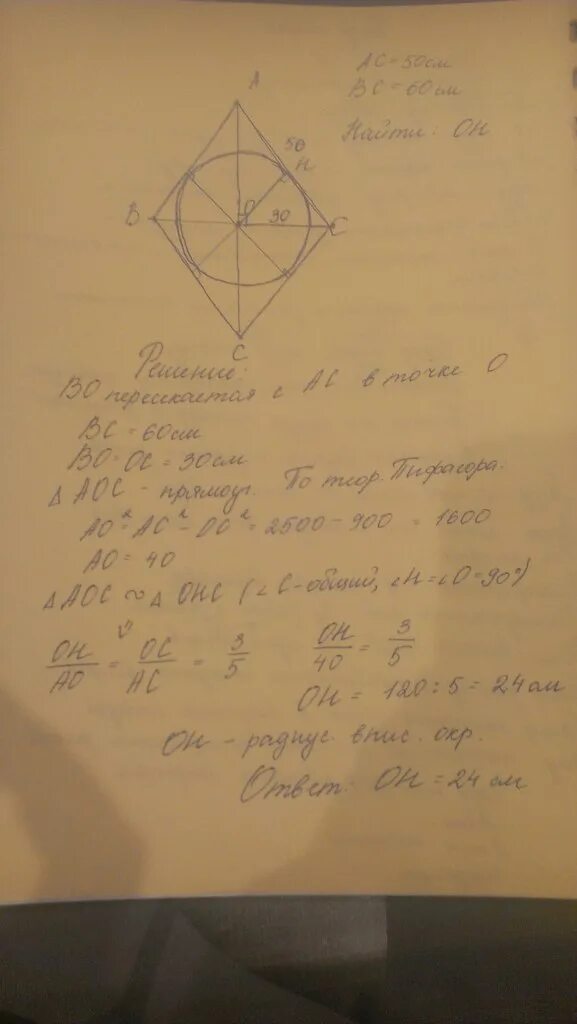 AC = 50 см
BC = 60 см
Найти: OH
A
50
H
B
O
30
C
C
Решение:
BO пересекается с AC в точке O
BC = 60 см
BO = OC = 30 см
△ AOC - прямоуг. По теор. Пифагора.
AO² = AC² - OC² = 2500 - 900 = 1600
AO = 40
△ AOC ~ △ OHC (∠C - общий, ∠H = ∠O = 90°)
⇓
OH/AO = OC/AC = 3/5 OH/40 = 3/5
OH = 120 : 5 = 24 см
OH - радиус впис. окр.
Ответ: OH = 24 см